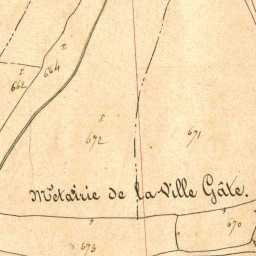 664
662
672
671
Métairie de la Ville Gâte.
670
673